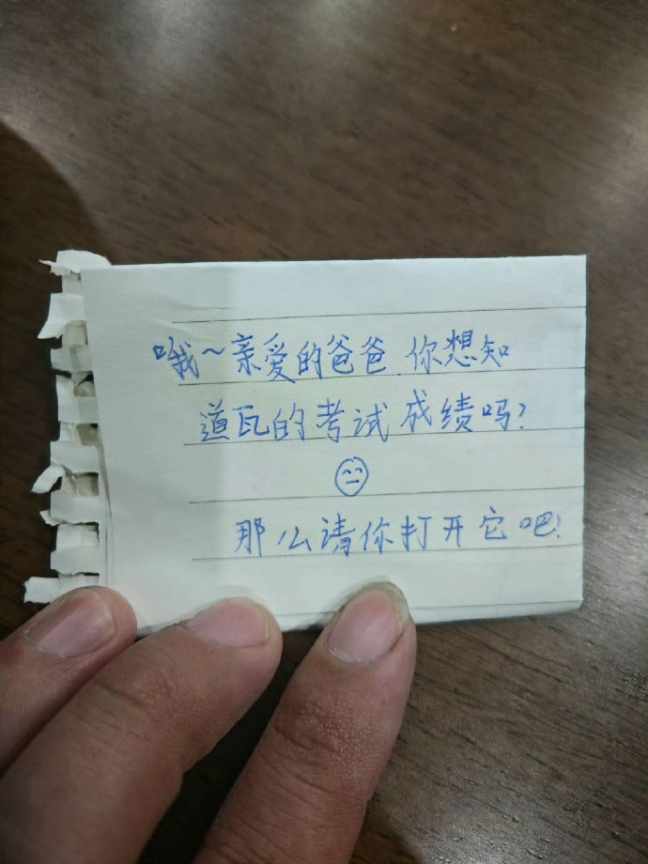 哦~亲爱的爸爸,你想知
道瓦的考试成绩吗?
那么请你打开它吧!